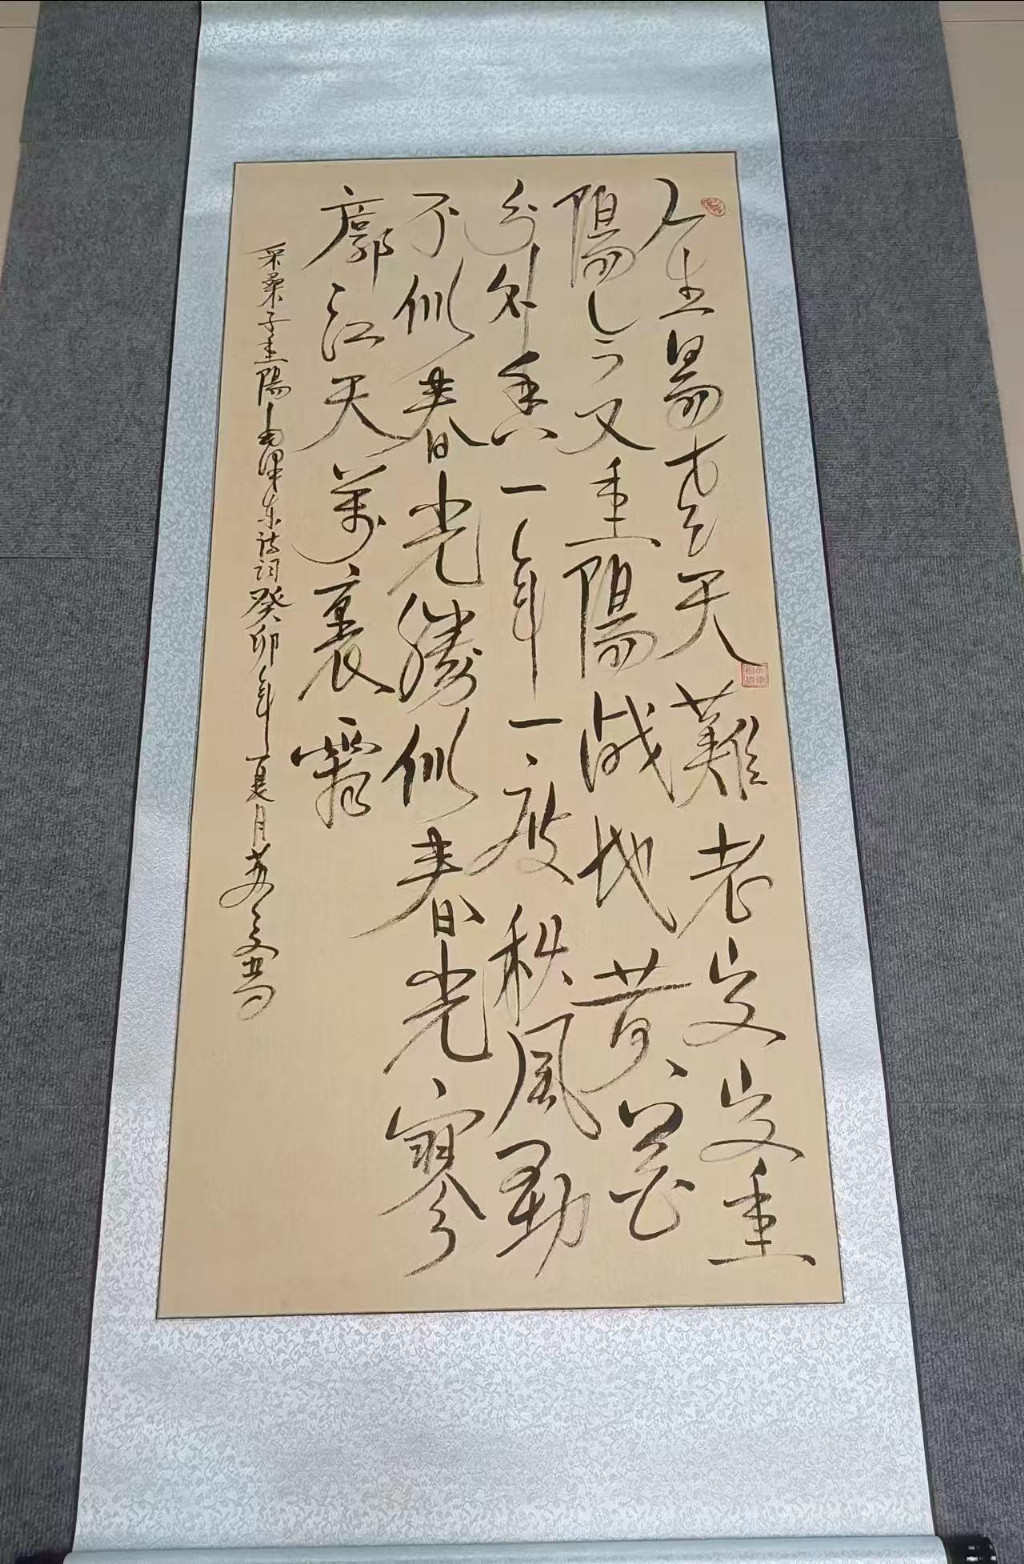 人生易老天難老岁岁重
陽今又重陽战地黄花
分外香一年一度秋風勁
不似春光勝似春光寥
廓江天萬裏霜
采桑子重陽毛澤东诗词癸卯年夏月